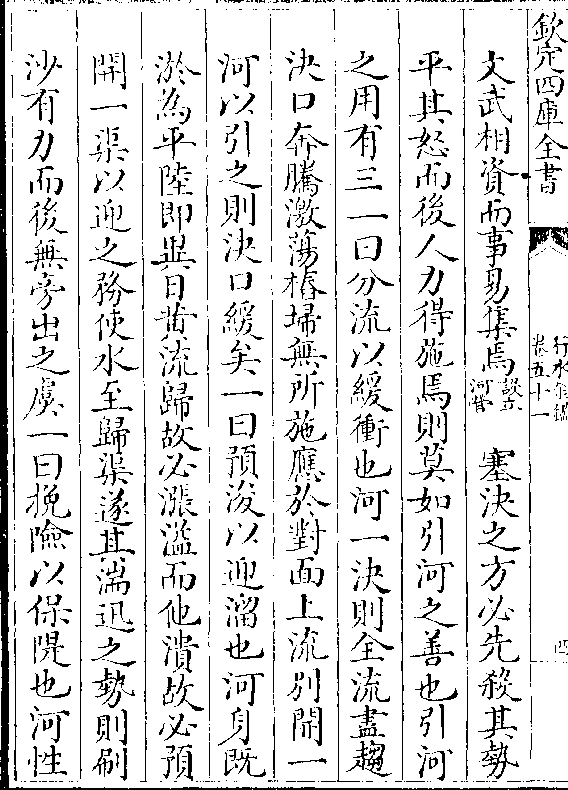 欽定四庫全書
行水金鑑
卷五十一
四
文武相資而事易集焉
河督
塞決之方必先殺其勢
平其怒而後人力得施焉則莫如引河之善也引河
之用有三一曰分流以緩衝也河一決則全流盡趨
決口奔騰激蕩樁埽無所施應於對面上流別開一
河以引之則決口緩矣一曰預浚以迎溜也河身既
淤為平陸即異日黃流歸故必漲溢而他潰故必預
開一渠以迎之務使水至歸渠遂其湍迅之勢則刷
沙有力而後無旁出之虞一曰挽險以保隄也河性